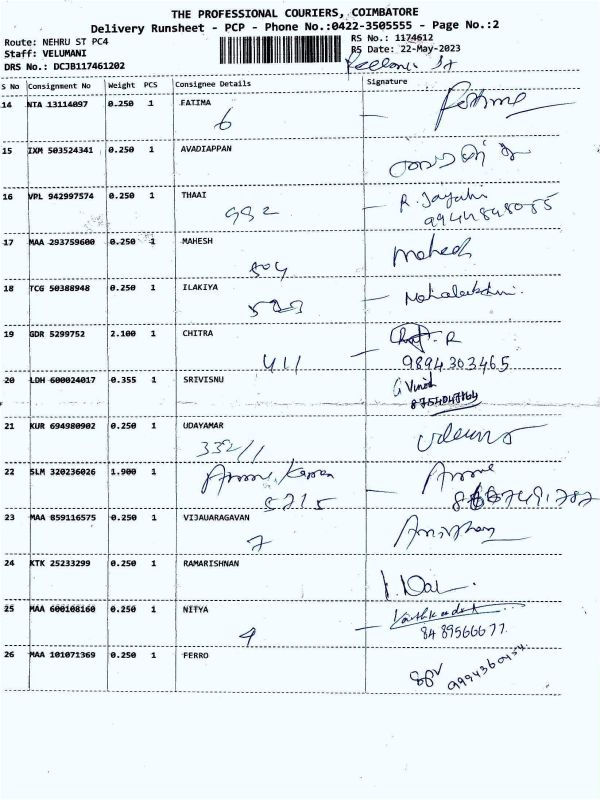 THE PROFESSIONAL COURIERS, COIMBATORE
Delivery Runsheet - PCP - Phone No.:0422-3505555 - Page No.:2
Route: NEHRU ST PC4 RS No.: 1174612
Staff: VELUMANI RS Date: 22-May-2023
DRS No.: DCJB117461202
S No Consignment No Weight PCS Consignee Details Signature
14 NTA 13114097 0.250 1 FATIMA
6
15 IXM 503524341 0.250 1 AVADIAPPAN
16 VPL 942997574 0.250 1 THAAI R. Jayahi
982
17 MAA 293759600 0.250 1 MAHESH Mahesh
504
18 TCG 50388948 0.250 1 ILAKIYA Mahalakshmi
19 GDR 5299752 2.100 1 CHITRA
411 9894303465
20 LDH 600024017 0.355 1 SRIVISNU G Vinoth
8754047764
21 KUR 694980902 0.250 1 UDAYAMAR
332/1
22 SLM 320236026 1.900 1
5215
23 MAA 859116575 0.250 1 VIJAUARAGAVAN
7
24 KTK 25233299 0.250 1 RAMARISHNAN
25 MAA 600108160 0.250 1 NITYA
4 8489566677
26 MAA 101071369 0.250 1 FERRO